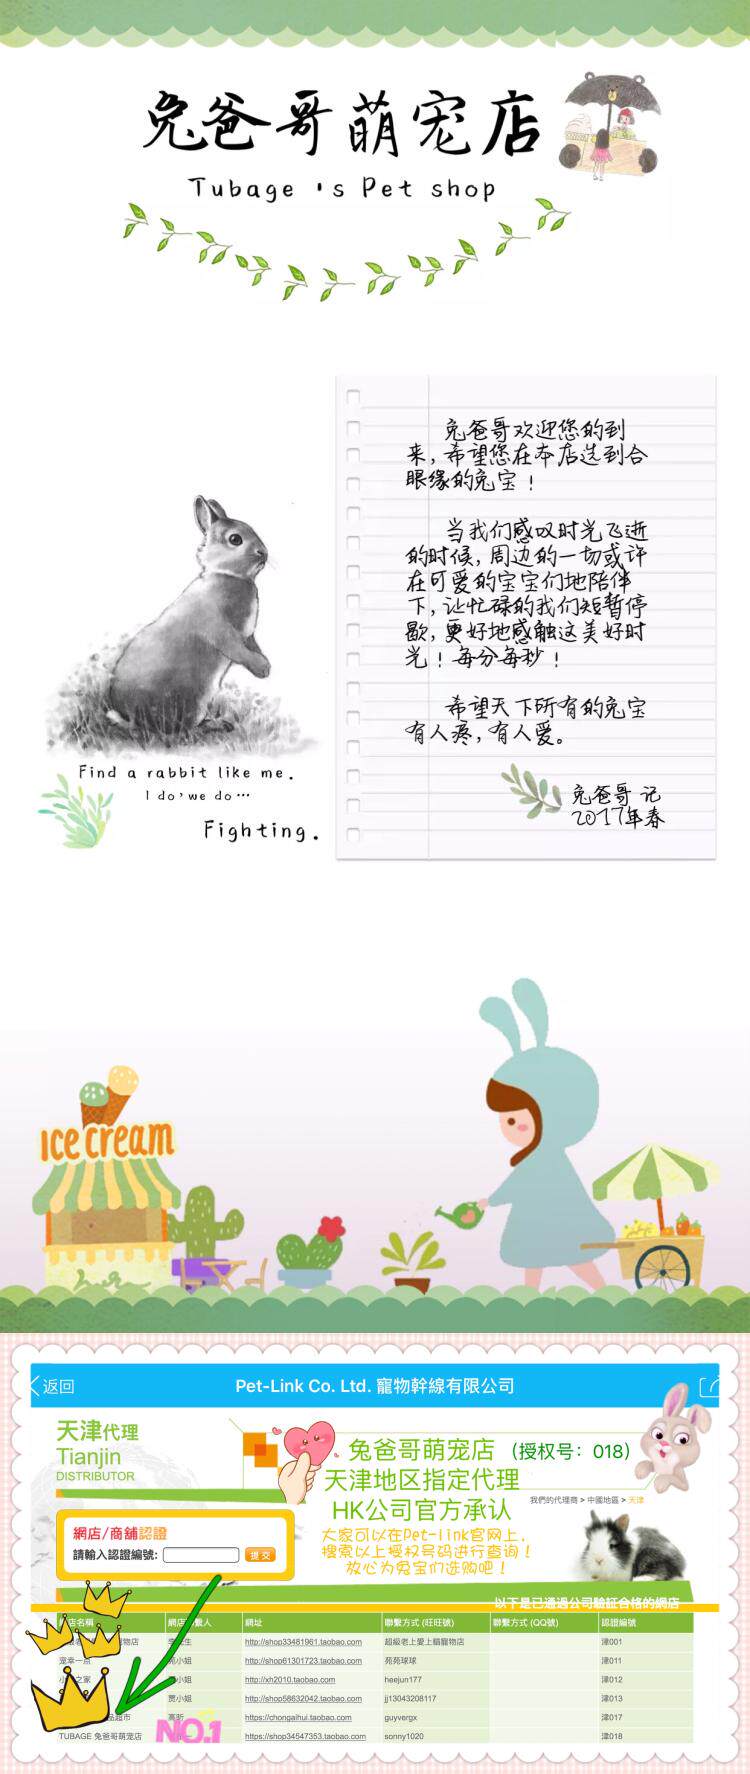 兔爸哥萌宠店
Tubage 's Pet shop
兔爸哥欢迎您的到
来，希望您在本店选到合
眼缘的兔宝！
当我们感叹时光飞逝
的时候，周边的一切或许
在可爱的宝宝们地陪伴
下，让忙碌的我们短暂停
歇，更好地感触这美好时
光！每分每秒！
希望天下所有的兔宝
有人疼，有人爱。
兔爸哥 记
2017年春
Find a rabbit like me.
I do，we do…
Fighting.
ICE cream
返回
Pet-Link Co. Ltd. 寵物幹線有限公司
天津代理
Tianjin
DISTRIBUTOR
兔爸哥萌宠店（授权号：018）
天津地区指定代理
HK公司官方承认
我們的代理商 > 中國地區 > 天津
大家可以在Pet-link官网上，
搜索以上授权号码进行查询！
放心为兔宝们选购吧！
網店/商舖認證
請輸入認證編號:
提交
以下是已通過公司驗証合格的網店
店名稱 網店 繫人 網址 聯繫方式 (旺旺號) 聯繫方式 (QQ號) 認證編號
物店 生 http://shop33481961.taobao.com 超級老上愛上貓寵物店 津001
宠幸一点 小姐 http://shop61301723.taobao.com 苑苑球球 津011
小 之家 小姐 http://xh2010.taobao.com heejun177 津012
贾小姐 http://shop58632042.taobao.com jj13043208117 津013
品超市 高昕 https://chongaihui.taobao.com guyvergx 津017
TUBAGE 兔爸哥萌宠店 https://shop34547353.taobao.com sonny1020 津018
NO.1